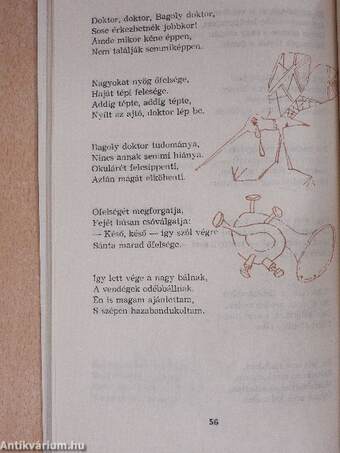 Doktor, doktor, Bagoly doktor,
Sose érkezhetnék jobbkor!
Ámde mikor kéne éppen,
Nem találják semmiképpen.
Nagyokat nyög őfelsége,
Haját tépi felesége.
Addig tépte, addig tépte,
Nyílt az ajtó, doktor lép be.
Bagoly doktor tudománya,
Nincs annak semmi hiánya.
Okulárét felcsippenti,
Aztán magát elköhenti.
Őfelségét megforgatja,
Fejét búsan csóválgatja:
— Késő, késő — így szól végre
Sánta marad őfelsége.
Így lett vége a nagy bálnak,
A vendégek odébbállnak.
Én is magam ajánlottam,
S szépen hazabandukoltam.
56
Antikvárium.hu